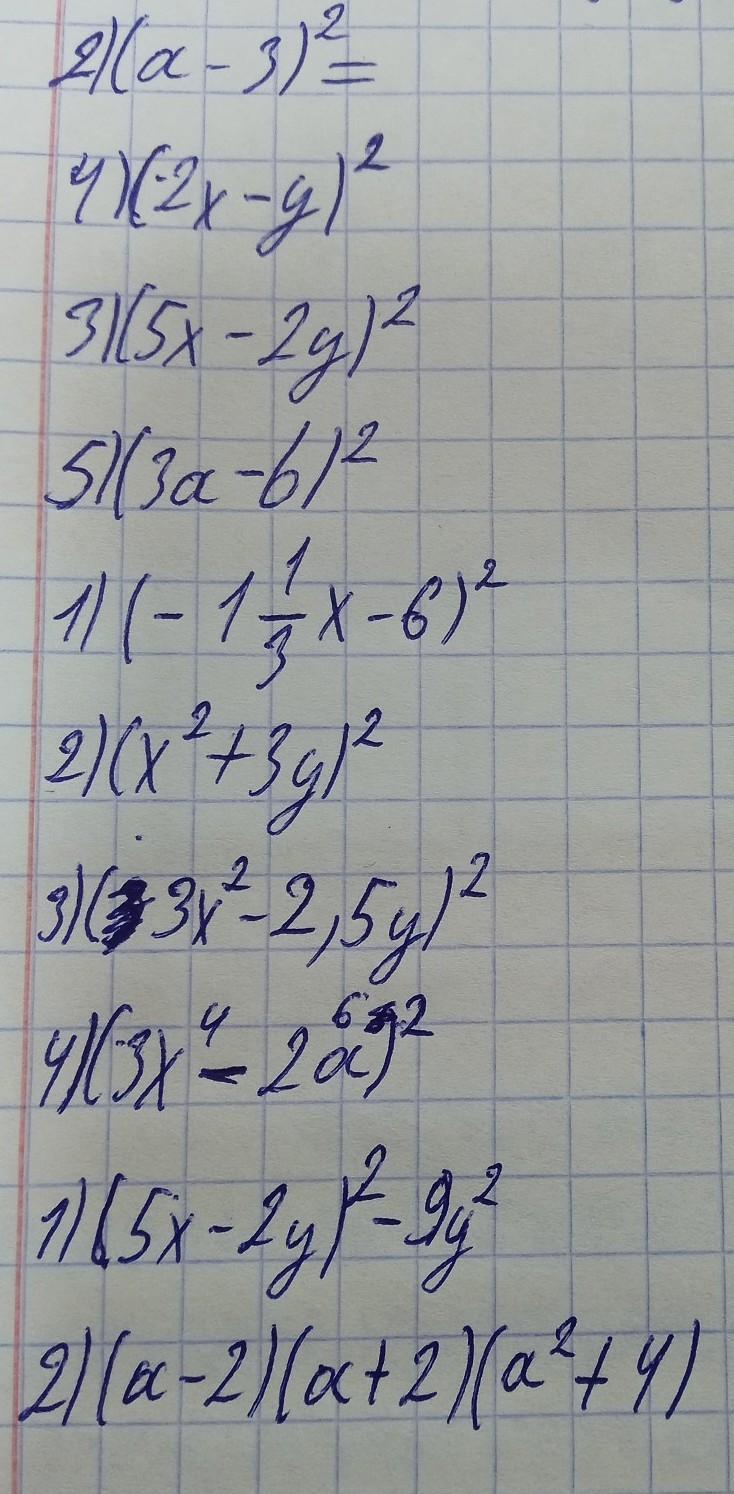 2) (a - 3)² =
4) (-2x - y)²
3) (5x - 2y)²
5) (3a - b)²
1) (-1 1/3 x - 6)²
2) (x² + 3y)²
3) (3x² - 2,5y)²
4) (-3x⁴ - 2a⁶)²
1) (5x - 2y)² - 9y²
2) (a - 2)(a + 2)(a² + 4)